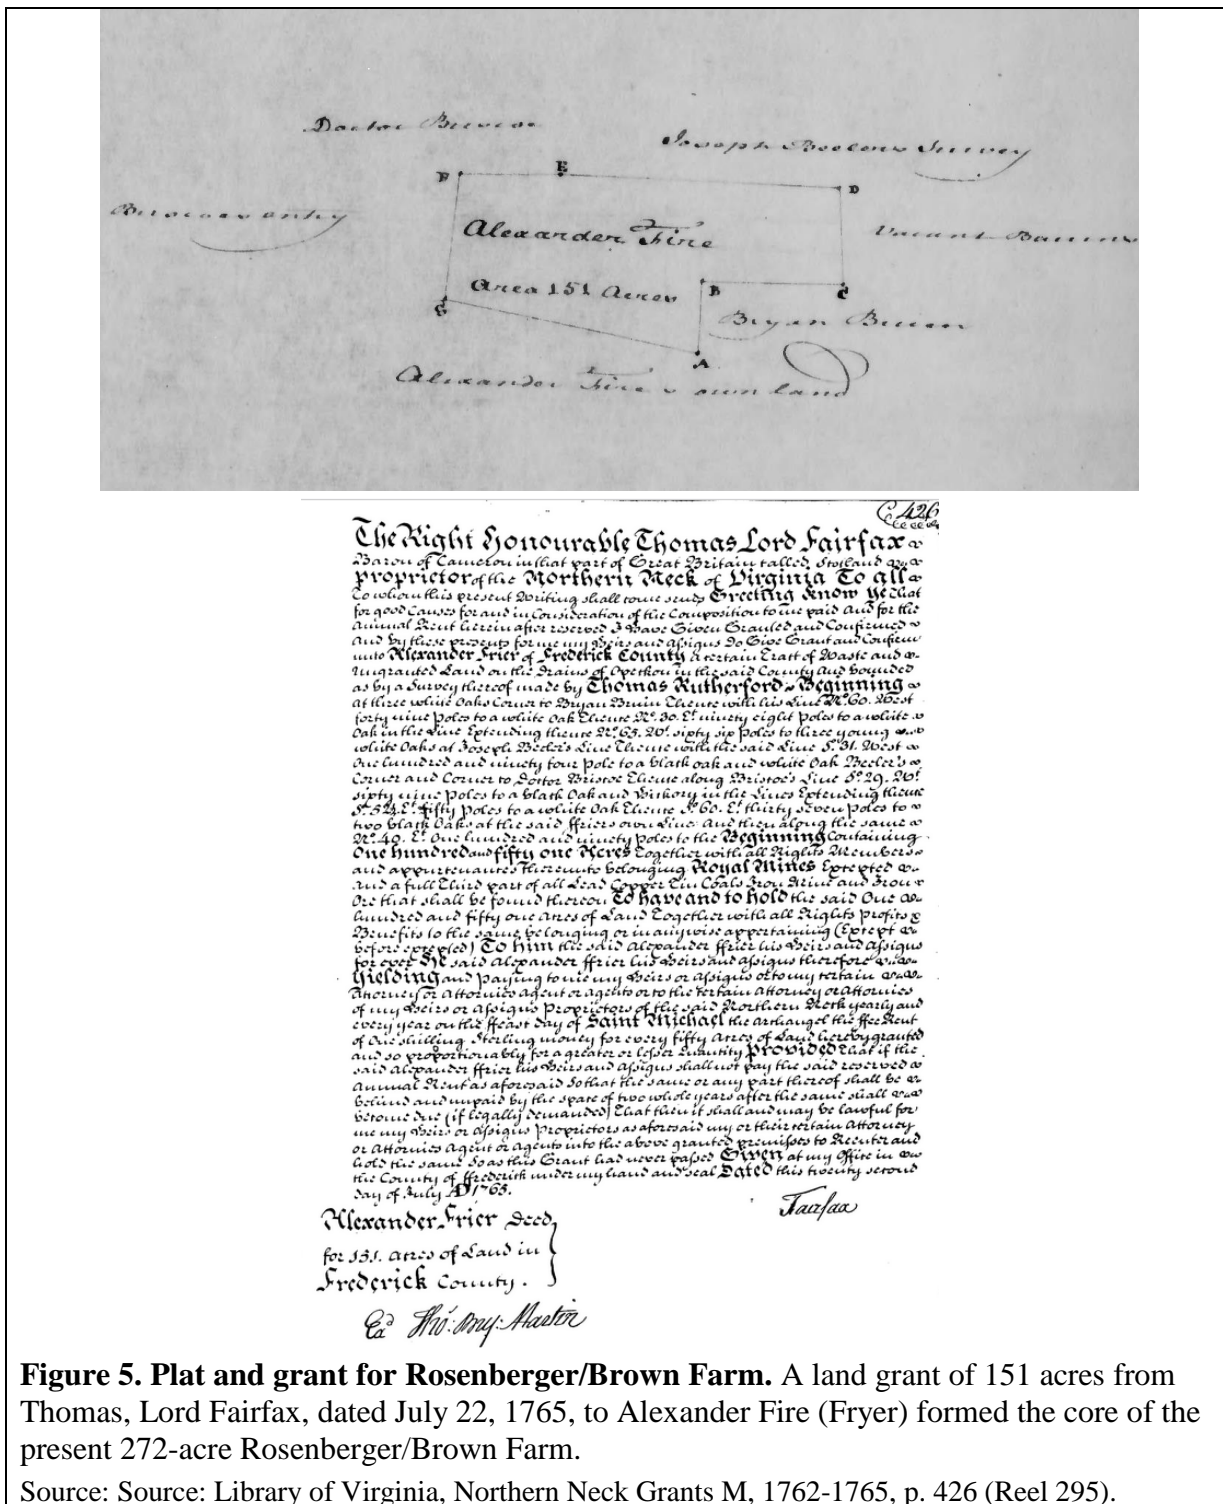 Doctor Briscoe
Joseph Beelers Survey
F
E
D
Briscoes entry
Alexander Fire
Vacant Barrens
Area 151 Acres
B
C
G
Bryan Bruen
A
Alexander Fire's own land
426
The Right Honourable Thomas Lord Fairfax
Baron of Cameron in that part of Great Britain called Scotland
proprietor of the Northern Neck of Virginia To all
To whom this present Writing shall come sends Greeting Know Ye that
for good Causes for and in Consideration of the Composition to me paid And for the
Annual Rent herein after reserved I Have Given Granted and Confirmed
And by these presents for me my Heirs and Assigns Do Give Grant and Confirm
unto Alexander Frier of Frederick County A certain Tract of Waste and
ungranted Land on the Drains of Opeckon in the said County And bounded
as by a Survey thereof made by Thomas Rutherford Beginning
at three white Oaks Corner to Bryan Bruin Thence with his Line No. 60. West
forty nine Poles to a white Oak Thence No. 30. Et. ninety eight Poles to a white
Oak in the Line Extending thence No. 65. Wt. sixty six Poles to three young
white Oaks at Joseph Beeler's Line Thence with the said Line So. 31. West
One hundred and ninety four Pole to a black oak and white Oak Beeler's
Corner and Corner to Doctor Briscoe Thence along Briscoe's Line So. 29. Wt.
sixty nine Poles to a black Oak and Hickory in the Lines Extending thence
So. 52. Et. fifty Poles to a white Oak Thence So. 60. Et. thirty seven Poles to
two black Oaks at the said ffriers own Line And then along the same
No. 40. Et. One hundred and ninety poles to the Beginning Containing
One hundred and fifty one Acres Together with all Rights Members
and appurtenances thereunto belonging Royal Mines Excepted
And a full Third part of all Lead Copper Tin Coals Iron Mine and Iron
Ore that shall be found thereon To have and to hold the said One
hundred and fifty one Acres of Land Together with all Rights Profits &
Benefits to the same belonging or in any wise appertaining (Except
before excepted) To him the said Alexander ffrier his Heirs and Assigns
for ever He said Alexander ffrier his Heirs and Assigns therefore
Yielding and Paying to me my Heirs or Assigns or to my certain
Attorney or Attornies Agent or Agents or to the certain Attorney or Attornies
of my Heirs or Assigns Proprietors of the said Northern Neck yearly and
every year on the ffeast day of Saint Michael the Archangel the ffee Rent
of One shilling Sterling money for every fifty Acres of Land hereby granted
and so proportionably for a greater or lesser Quantity Provided that if the
said Alexander ffrier his Heirs and Assigns shall not pay the said reserved
Annual Rent as aforesaid So that the same or any part thereof shall be
behind and unpaid by the space of two whole years after the same shall
become due (if legally demanded) That then it shall and may be lawful for
me my Heirs or Assigns Proprietors as aforesaid my or their certain Attorney
or Attornies Agent or Agents into the above granted premisses to Reenter and
hold the same So as this Grant had never passed Given at my Office in
the County of ffrederick under my hand and seal Dated this twenty second
day of July AD 1765.
Fairfax
Alexander Frier Deed
for 151. Acres of Land in
Frederick County.
Exd Tho: Bry: Martin
Figure 5. Plat and grant for Rosenberger/Brown Farm. A land grant of 151 acres from
Thomas, Lord Fairfax, dated July 22, 1765, to Alexander Fire (Fryer) formed the core of the
present 272-acre Rosenberger/Brown Farm.
Source: Source: Library of Virginia, Northern Neck Grants M, 1762-1765, p. 426 (Reel 295).